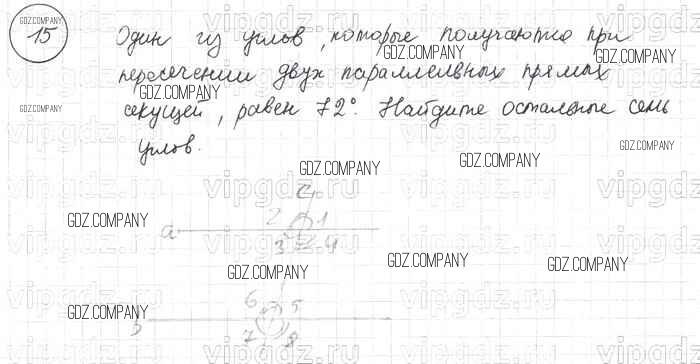 GDZ.COMPANY
15
Один из углов, которые получаются при
GDZ.COMPANY GDZ.COMPANY
пересечении двух параллельных прямых
GDZ.COMPANY
секущей, равен 72°. Найдите остальные семь
GDZ.COMPANY
углов.
GDZ.COMPANY
GDZ.COMPANY
GDZ.COMPANY
vipgdz.ru vipgdz.ru vipgdz.ru
c
GDZ.COMPANY
2 1
a
3 4
GDZ.COMPANY
GDZ.COMPANY
GDZ.COMPANY
6 5
b
7 8